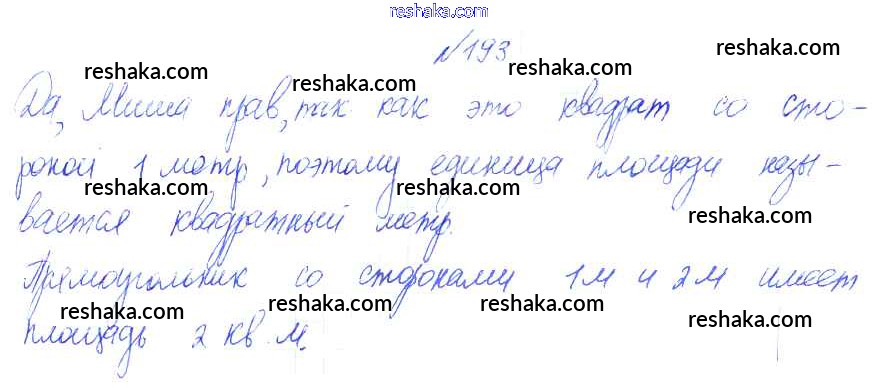 reshaka.com
№193
reshaka.com
reshaka.com reshaka.com
Да, Миша прав, так как это квадрат со сто-
reshaka.com reshaka.com
роной 1 метр, поэтому единица площади назы-
reshaka.com reshaka.com
reshaka.com
вается квадратный метр.
reshaka.com
Прямоугольник со сторонами 1 м и 2 м имеет
reshaka.com reshaka.com reshaka.com
reshaka.com
площадь 2 кв. м.